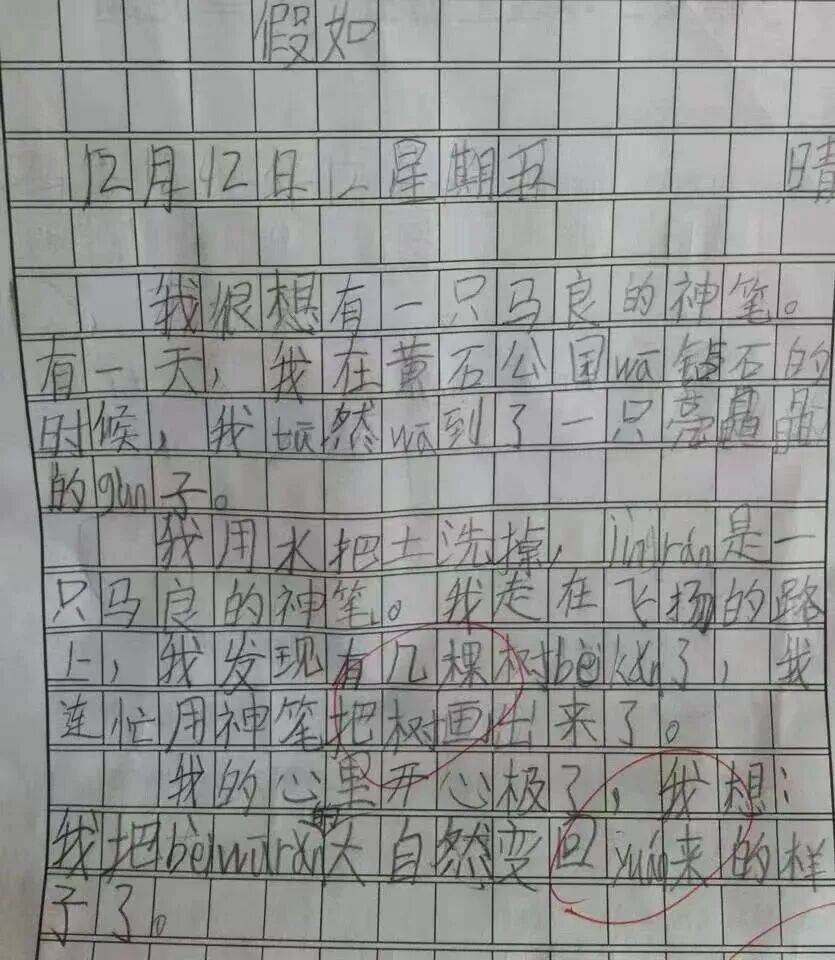 假如
12月12日 星期五 晴
我很想有一只马良的神笔。
有一天，我在黄石公国wā钻石的
时候，我tū然wā到了一只亮晶晶
的gùn子。
我用水把土洗掉，jìngrán是一
只马良的神笔。我走在飞扬的路
上，我发现有几棵树bèikǎn了，我
连忙用神笔把树画出来了。
我的心里开心极了，我想：
我把bèiwūrǎn的大自然变回yuán来的样
子了。